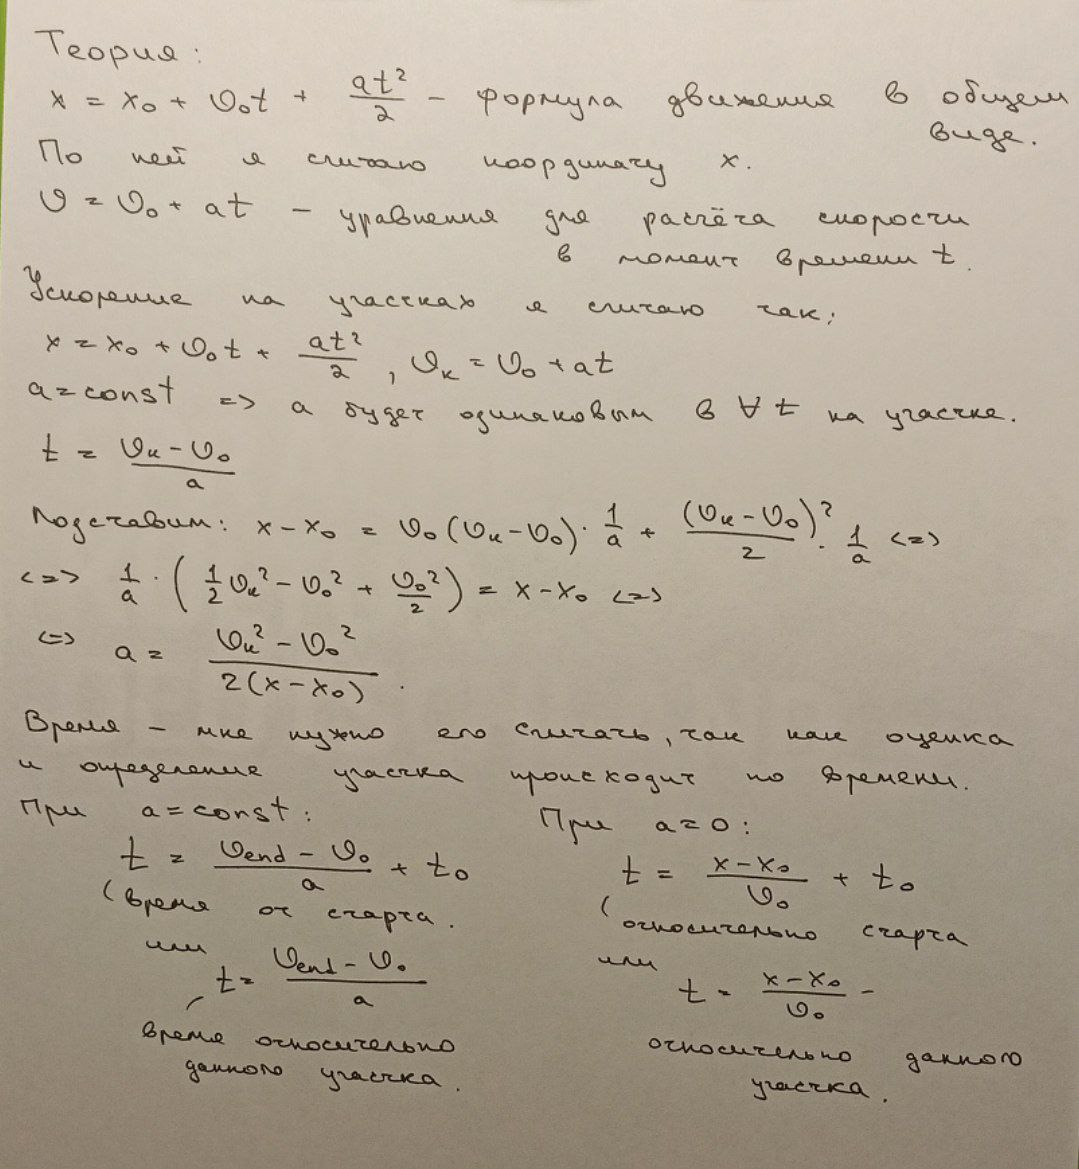 Теория:
x = x₀ + υ₀t + at²/2 – формула движения в общем
виде.
По ней я считаю координату x.
υ = υ₀ + at – уравнения для расчёта скорости
в момент времени t.
Ускорение на участках я считаю так:
x = x₀ + υ₀t + at²/2, υₖ = υ₀ + at
a = const => a будет одинаковым в ∀ t на участке.
t = (υₖ – υ₀)/a
Подставим: x – x₀ = υ₀(υₖ – υ₀) · 1/a + (υₖ – υ₀)²/2 · 1/a <=>
<=> 1/a · (1/2 υₖ² – υ₀² + υ₀²/2) = x – x₀ <=>
<=> a = (υₖ² – υ₀²)/(2(x – x₀)).
Время – мне нужно его считать, так как оценка
и определение участка происходит по времени.
При a = const:
t = (υend – υ₀)/a + t₀
(время от старта.
или
t = (υend – υ₀)/a
время относительно
данного участка.
При a = 0:
t = (x – x₀)/υ₀ + t₀
(относительно старта
или
t = (x – x₀)/υ₀ –
относительно данного
участка.